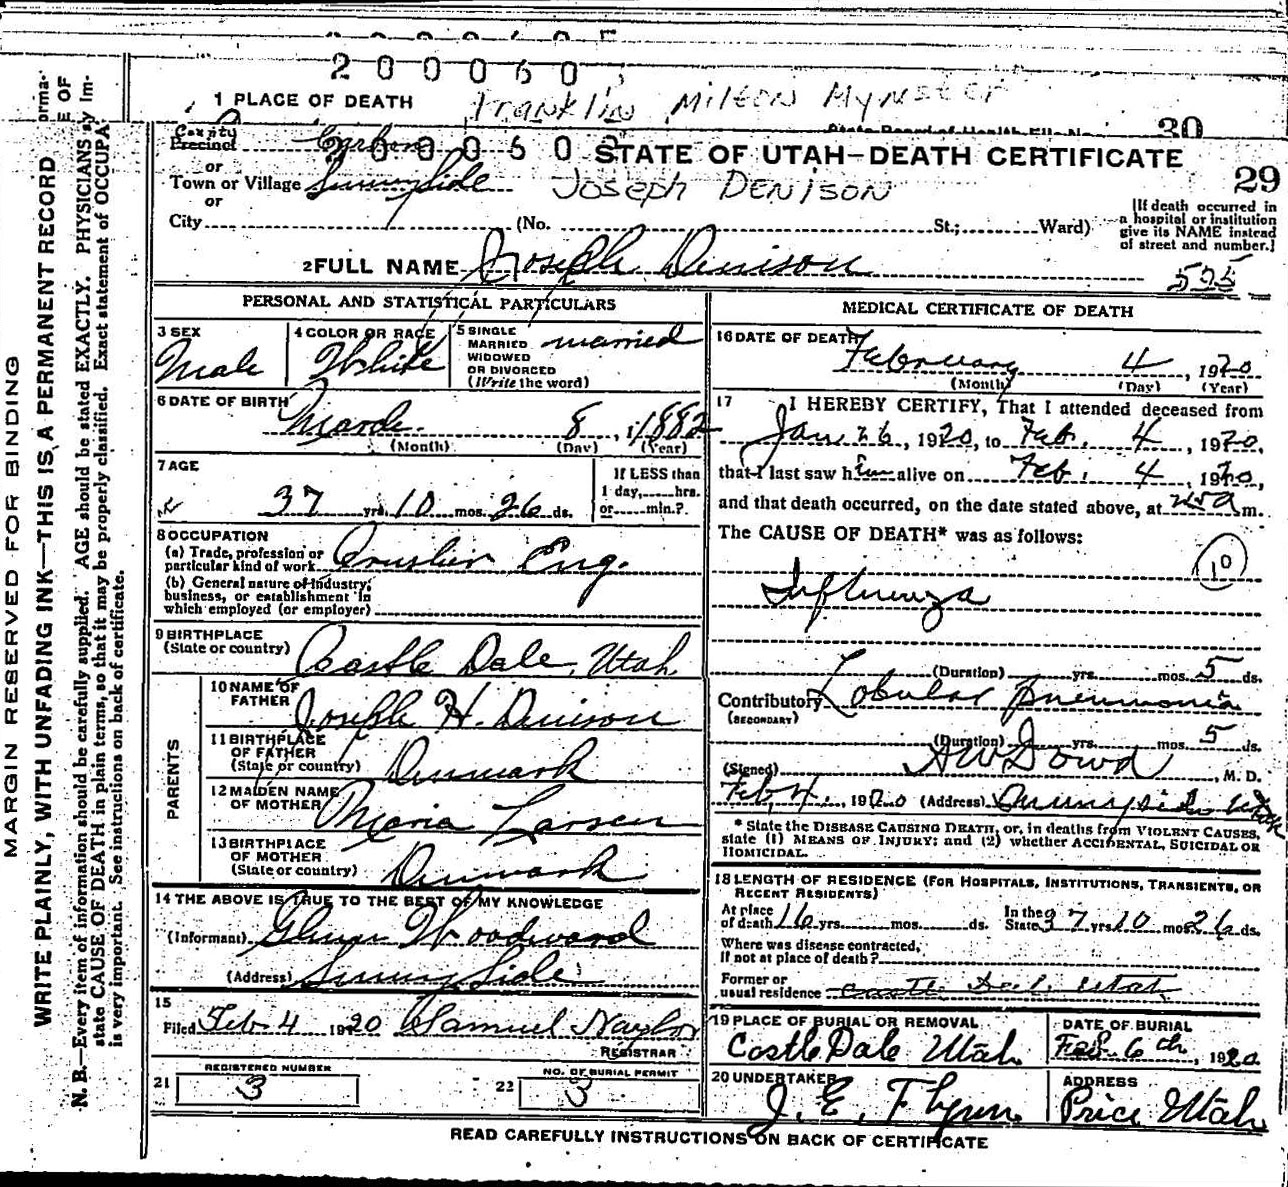 2 0 0 0 6 0
1 PLACE OF DEATH Franklin Milton Mynster
30
County
Precinct Carbon
2 0 0 0 6 0
STATE OF UTAH—DEATH CERTIFICATE
or
Town or Village Sunnyside Joseph DENISON
29
or
City (No. St.; Ward)
[If death occurred in
a hospital or institution
give its NAME instead
of street and number.]
2 FULL NAME Joseph Denison
595
PERSONAL AND STATISTICAL PARTICULARS
3 SEX
Male
4 COLOR OR RACE
White
5 SINGLE
MARRIED
WIDOWED
OR DIVORCED
(Write the word)
married
6 DATE OF BIRTH
March 8, 1882
(Month) (Day) (Year)
7 AGE
37 yrs. 10 mos. 26 ds.
If LESS than
1 day, hrs.
or min.?
8 OCCUPATION
(a) Trade, profession or
particular kind of work Crusher Eng.
(b) General nature of industry,
business, or establishment in
which employed (or employer)
9 BIRTHPLACE
(State or country) Castle Dale, Utah
PARENTS
10 NAME OF
FATHER Joseph H. Denison
11 BIRTHPLACE
OF FATHER
(State or country) Denmark
12 MAIDEN NAME
OF MOTHER Maria Larsen
13 BIRTHPLACE
OF MOTHER
(State or country) Denmark
14 THE ABOVE IS TRUE TO THE BEST OF MY KNOWLEDGE
(Informant) Glenn Woodward
(Address) Sunny Side
15
Filed Feb 4 1920 Samuel Naylor
REGISTRAR
REGISTERED NUMBER
21 3
NO. OF BURIAL PERMIT
22 3
MEDICAL CERTIFICATE OF DEATH
16 DATE OF DEATH
February 4, 1920
(Month) (Day) (Year)
17 I HEREBY CERTIFY, That I attended deceased from
Jan 26, 1920, to Feb. 4, 1920,
that I last saw him alive on Feb. 4, 1920,
and that death occurred, on the date stated above, at m.
The CAUSE OF DEATH* was as follows:
10
Influenza
(Duration) yrs. mos. 5 ds.
Contributory Lobular pneumonia
(SECONDARY)
(Duration) yrs. mos. 5 ds.
(Signed) A W Dowd, M. D.
Feb 4, 1920 (Address) Sunnyside Utah
* State the DISEASE CAUSING DEATH, or, in deaths from VIOLENT CAUSES,
state (1) MEANS OF INJURY; and (2) whether ACCIDENTAL, SUICIDAL OR
HOMICIDAL.
18 LENGTH OF RESIDENCE (FOR HOSPITALS, INSTITUTIONS, TRANSIENTS, OR
RECENT RESIDENTS)
At place
of death 16 yrs. mos. ds. In the
State 37 yrs. 10 mos. 26 ds.
Where was disease contracted,
if not at place of death?
Former or
usual residence Castle Dale Utah
19 PLACE OF BURIAL OR REMOVAL
Castle Dale Utah
DATE OF BURIAL
Feb. 6th, 1920
20 UNDERTAKER
J. E. Flynn
ADDRESS
Price Utah
READ CAREFULLY INSTRUCTIONS ON BACK OF CERTIFICATE
MARGIN RESERVED FOR BINDING
WRITE PLAINLY, WITH UNFADING INK—THIS IS A PERMANENT RECORD
N. B.—Every item of information should be carefully supplied. AGE should be stated EXACTLY. PHYSICIANS
state CAUSE OF DEATH in plain terms, so that it may be properly classified. Exact statement of OCCUPA
is very important. See instructions on back of certificate.